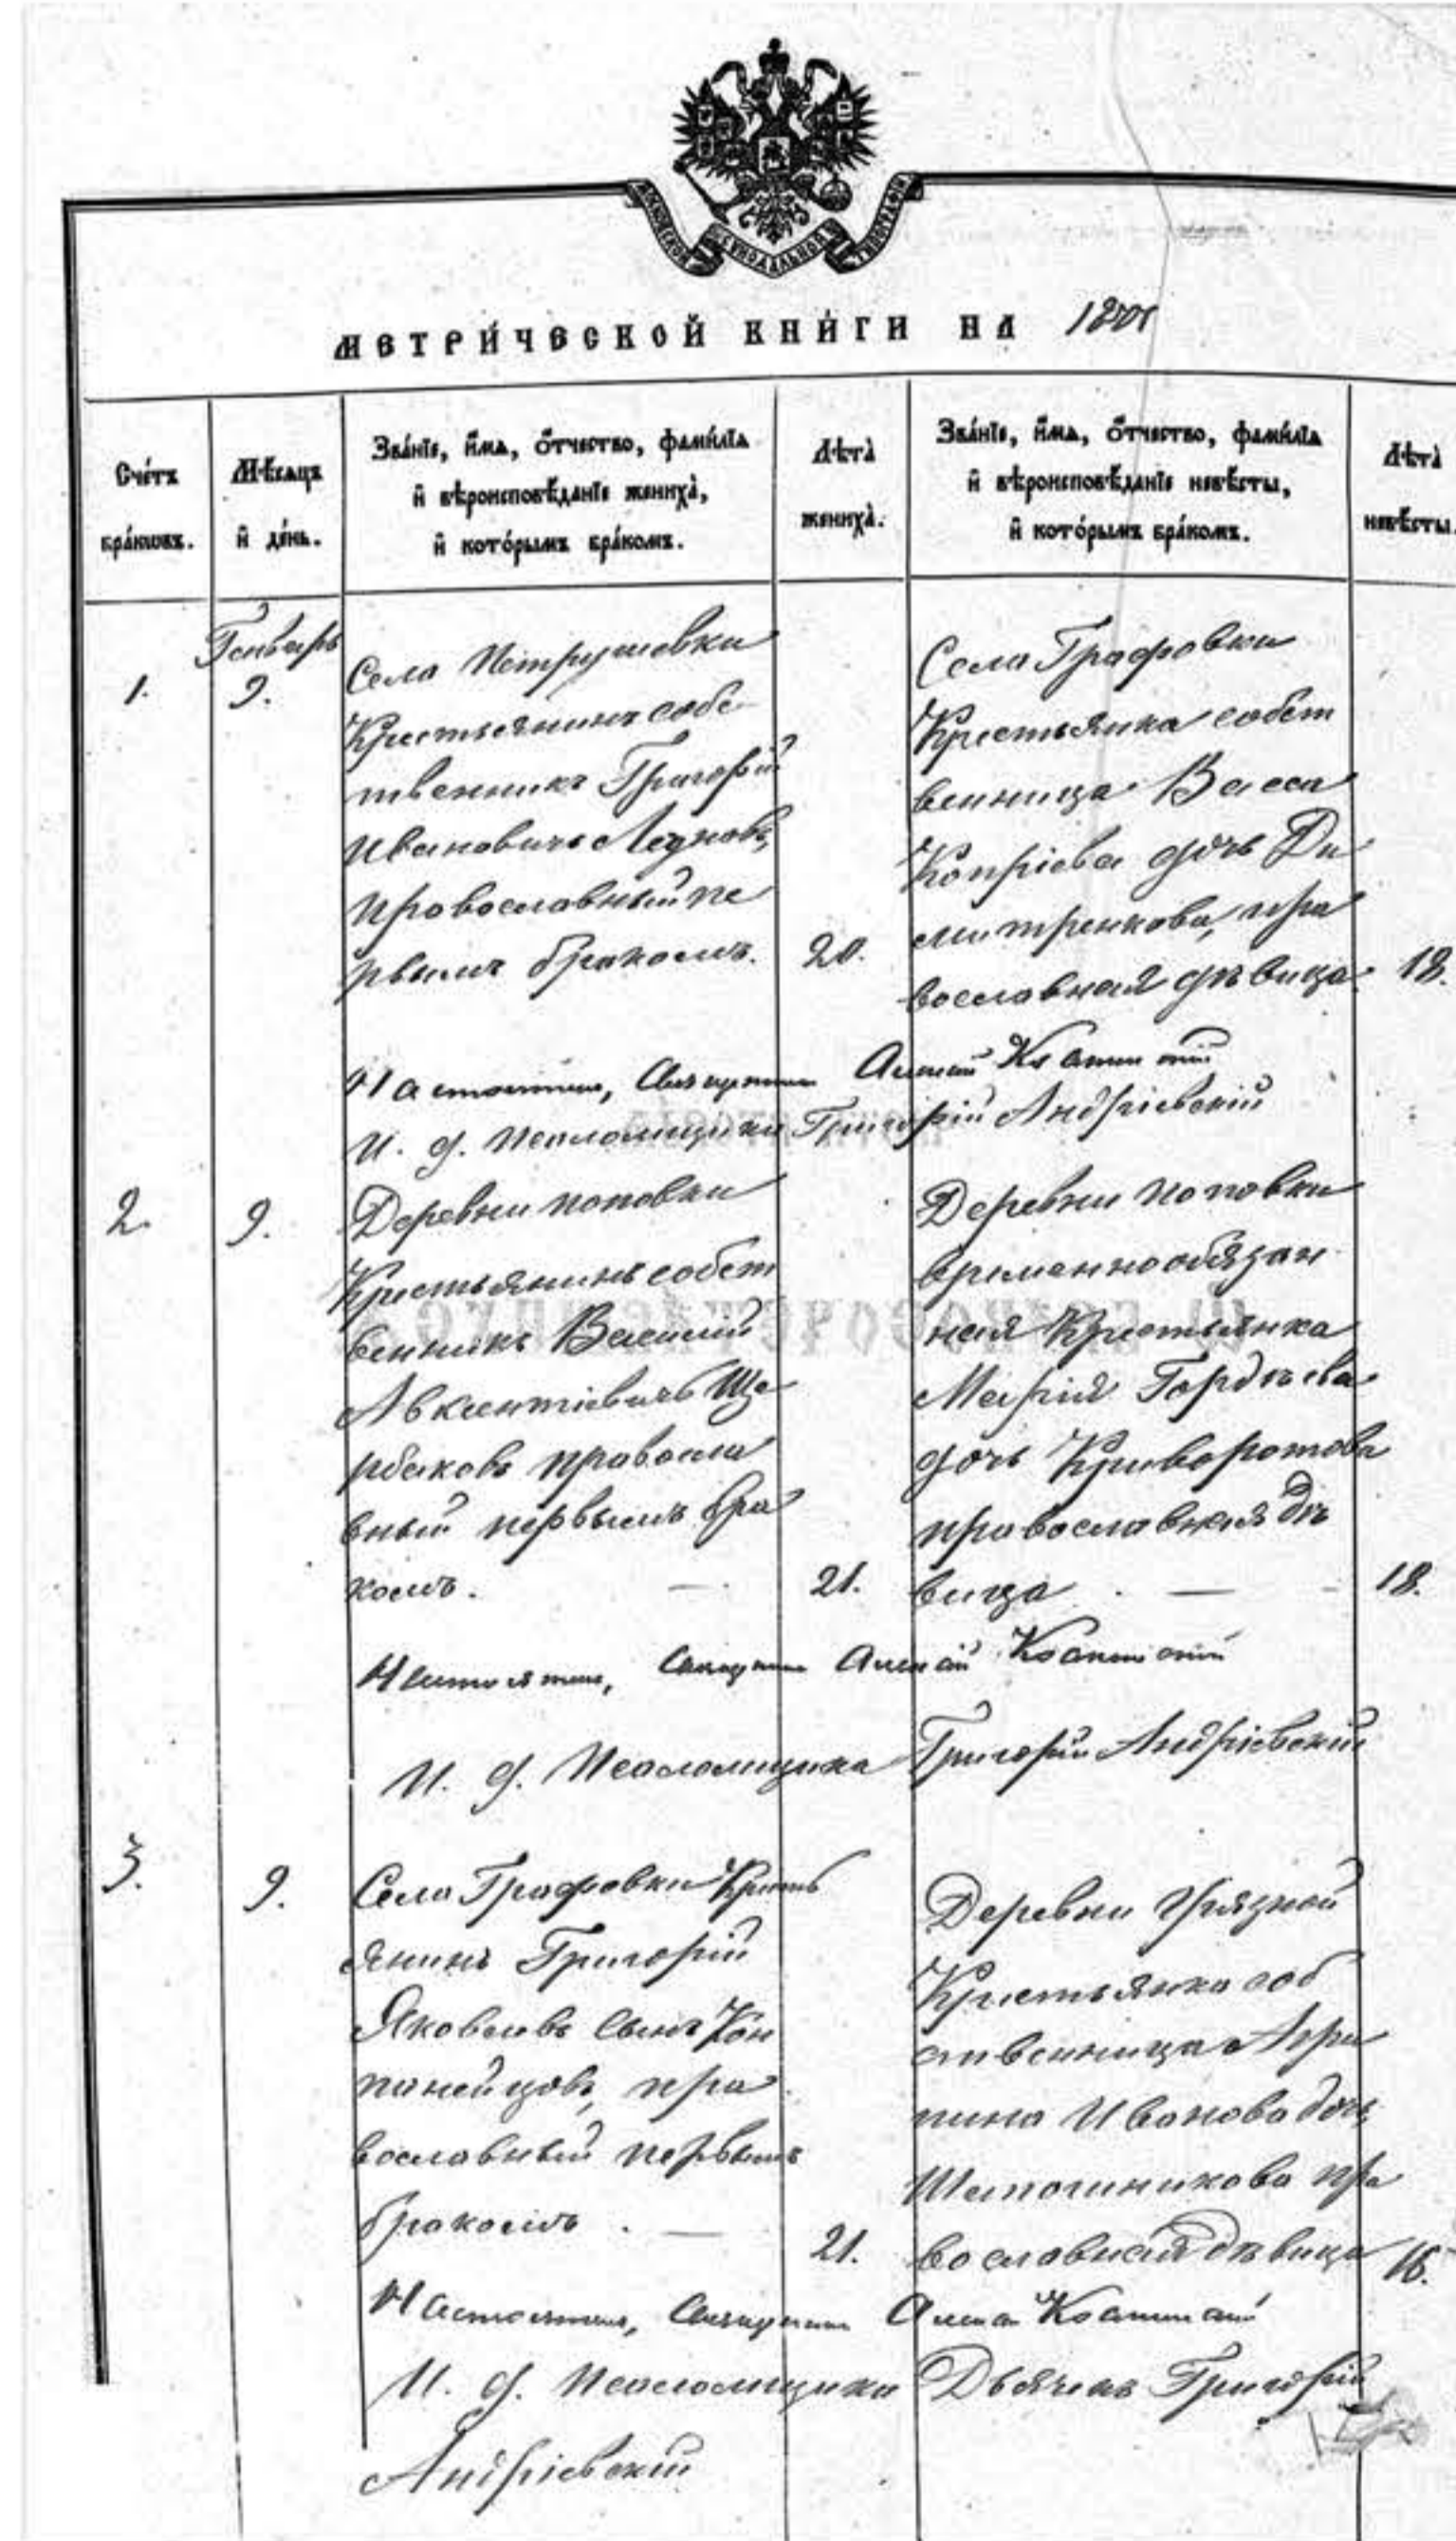 МОСКОВСКОЙ СѴНОДАЛЬНОЙ ТИПОГРАФІИ
МЕТРИ́ЧЕСКОЙ КНИ́ГИ НА
Сче́тъ бра́ковъ.
Мѣ́сяцъ и҆ де́нь.
Зва́нїе, и҆́мѧ, ѻ҆́тчество, фамилїѧ
и҆ вѣроисповѣ́данїе женихà,
и҆ кото́рымъ бра́комъ.
Лѣтà женихà.
Зва́нїе, и҆́мѧ, ѻ҆́тчество, фамилїѧ
и҆ вѣроисповѣ́данїе невѣ́сты,
и҆ кото́рымъ бра́комъ.
Лѣтà невѣ́сты.
Генварь
1.
9.
Села Петрушовки
Крестьянинъ собс
твенникъ Григорій
Ивановичъ
православный пе
рвымъ бракомъ.
20.
Села Графовки
Крестьянка собст
венница Васса
Копріева дочь Ди
митренкова, пра
вославная дѣвица
18.
Настоятель, Священникъ
И. д. Псаломщика Григорій Андріевскій
2.
9.
Деревни Поповки
Крестьянинъ собст
венникъ Василій
Авксентіевичъ Ще
рбаковъ правосла
вный первымъ бра
комъ. —
21.
Деревни Поповки
временнообязан
ная Крестьянка
Марія Гордѣева
дочь Криворотова
православная дѣ
вица. —
18.
Настоятель, Священникъ
И. д. Псаломщика Григорій Андріевскій
3.
9.
Села Графовки Кресть
янинъ Григорій
Яковлевъ сынъ Кон
панейцовъ, пра
вославный первымъ
бракомъ. —
21.
Деревни Грязной
Крестьянка соб
ственница Агри
пина Иванова дочь
пра
вославная дѣвица
Настоятель, Священникъ
И. д. Псаломщика Дьячекъ Григорій
Андріевскій